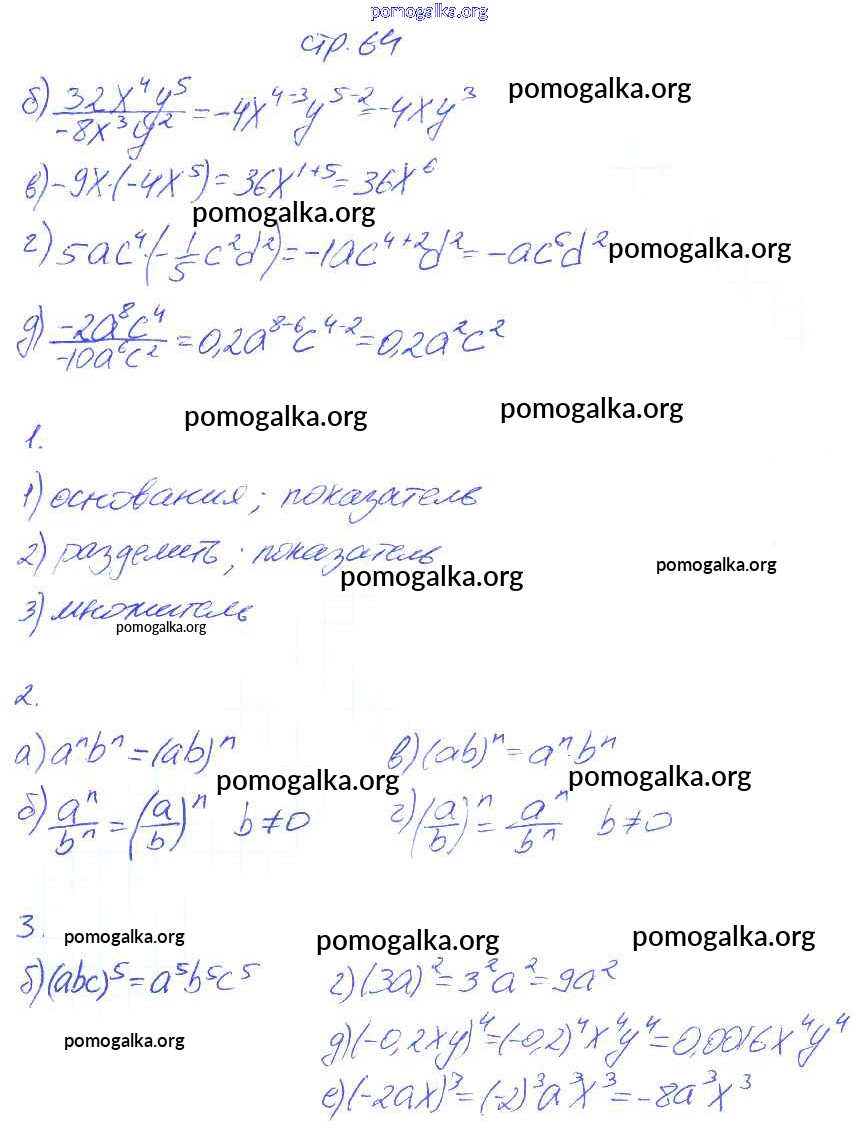 pomogalka.org
стр. 64
б) 32x⁴y⁵/-8x³y² = -4x⁴⁻³y⁵⁻² = -4xy³ pomogalka.org
в) -9x·(-4x⁵) = 36x¹⁺⁵ = 36x⁶
pomogalka.org
г) 5ac⁴·(-1/5c²d²) = -1ac⁴⁺²d² = -ac⁶d² pomogalka.org
д) -2a⁸c⁴/-10a⁶c² = 0,2a⁸⁻⁶c⁴⁻² = 0,2a²c²
pomogalka.org pomogalka.org
1.
1) основания; показатель
2) разделить; показатель
pomogalka.org pomogalka.org
3) множитель
pomogalka.org
2.
а) aⁿbⁿ = (ab)ⁿ в) (ab)ⁿ = aⁿ·bⁿ
pomogalka.org pomogalka.org
б) aⁿ/bⁿ = (a/b)ⁿ b≠0 г) (a/b)ⁿ = aⁿ/bⁿ b≠0
3.
pomogalka.org pomogalka.org pomogalka.org
б) (abc)⁵ = a⁵b⁵c⁵ г) (3a)² = 3²a² = 9a²
pomogalka.org
д) (-0,2xy)⁴ = (-0,2)⁴x⁴y⁴ = 0,0016x⁴y⁴
е) (-2ax)³ = (-2)³a³x³ = -8a³x³